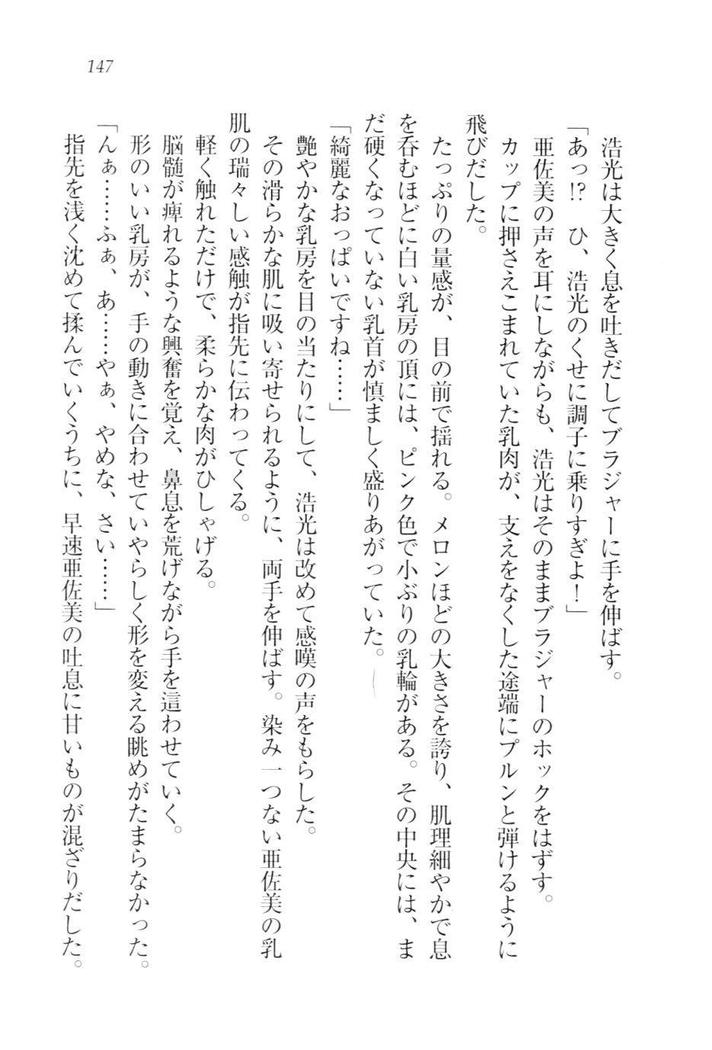 147
浩光は大きく息を吐きだしてブラジャーに手を伸ばす。
「あっ!?　ひ、浩光のくせに調子に乗りすぎよ！」
亜佐美の声を耳にしながらも、浩光はそのままブラジャーのホックをはずす。
カップに押さえこまれていた乳肉が、支えをなくした途端にプルンと弾けるように
飛びだした。
たっぷりの量感が、目の前で揺れる。メロンほどの大きさを誇り、肌理細やかで息
を呑むほどに白い乳房の頂には、ピンク色で小ぶりの乳輪がある。その中央には、ま
だ硬くなっていない乳首が慎ましく盛りあがっていた。
「綺麗なおっぱいですね……」
艶やかな乳房を目の当たりにして、浩光は改めて感嘆の声をもらした。
その滑らかな肌に吸い寄せられるように、両手を伸ばす。染み一つない亜佐美の乳
肌の瑞々しい感触が指先に伝わってくる。
軽く触れただけで、柔らかな肉がひしゃげる。
脳髄が痺れるような興奮を覚え、鼻息を荒げながら手を這わせていく。
形のいい乳房が、手の動きに合わせていやらしく形を変える眺めがたまらなかった。
「んぁ……ふぁ、あ……やぁ、やめな、さい……」
指先を浅く沈めて揉んでいくうちに、早速亜佐美の吐息に甘いものが混ざりだした。